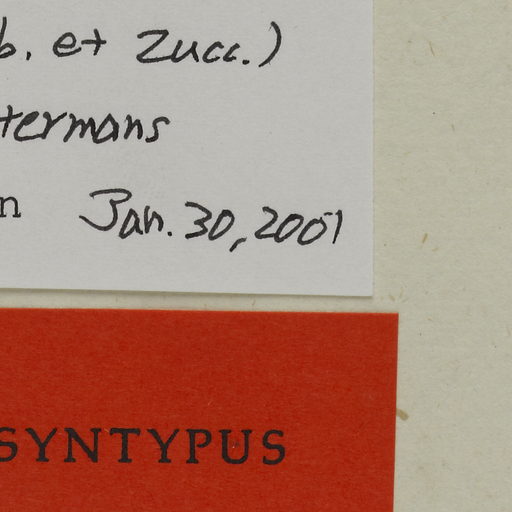 b. et Zucc.)
termans
n Jan. 30, 2001
SYNTYPUS